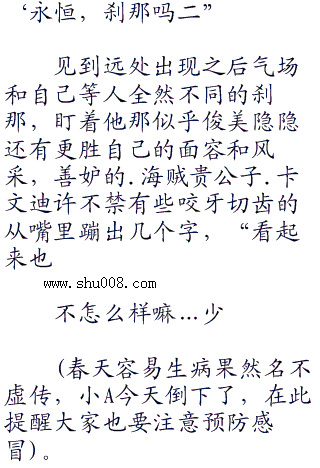 ‘永恒，刹那吗二”
见到远处出现之后气场
和自己等人全然不同的刹
那，盯着他那似乎俊美隐隐
还有更胜自己的面容和风
采，善妒的.海贼贵公子.卡
文迪许不禁有些咬牙切齿的
从嘴里蹦出几个字，“看起
来也
www.shu008.com
不怎么样嘛…少
(春天容易生病果然名不
虚传，小A今天倒下了，在此
提醒大家也要注意预防感
冒)。